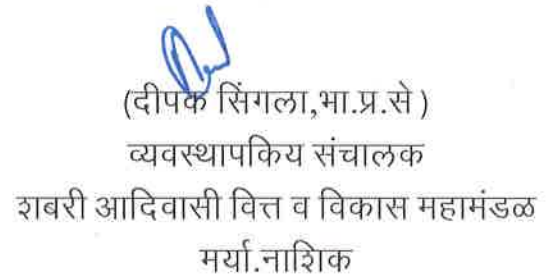 (दीपक सिंगला,भा.प्र.से )
व्यवस्थापकिय संचालक
शबरी आदिवासी वित्त व विकास महामंडळ
मर्या.नाशिक